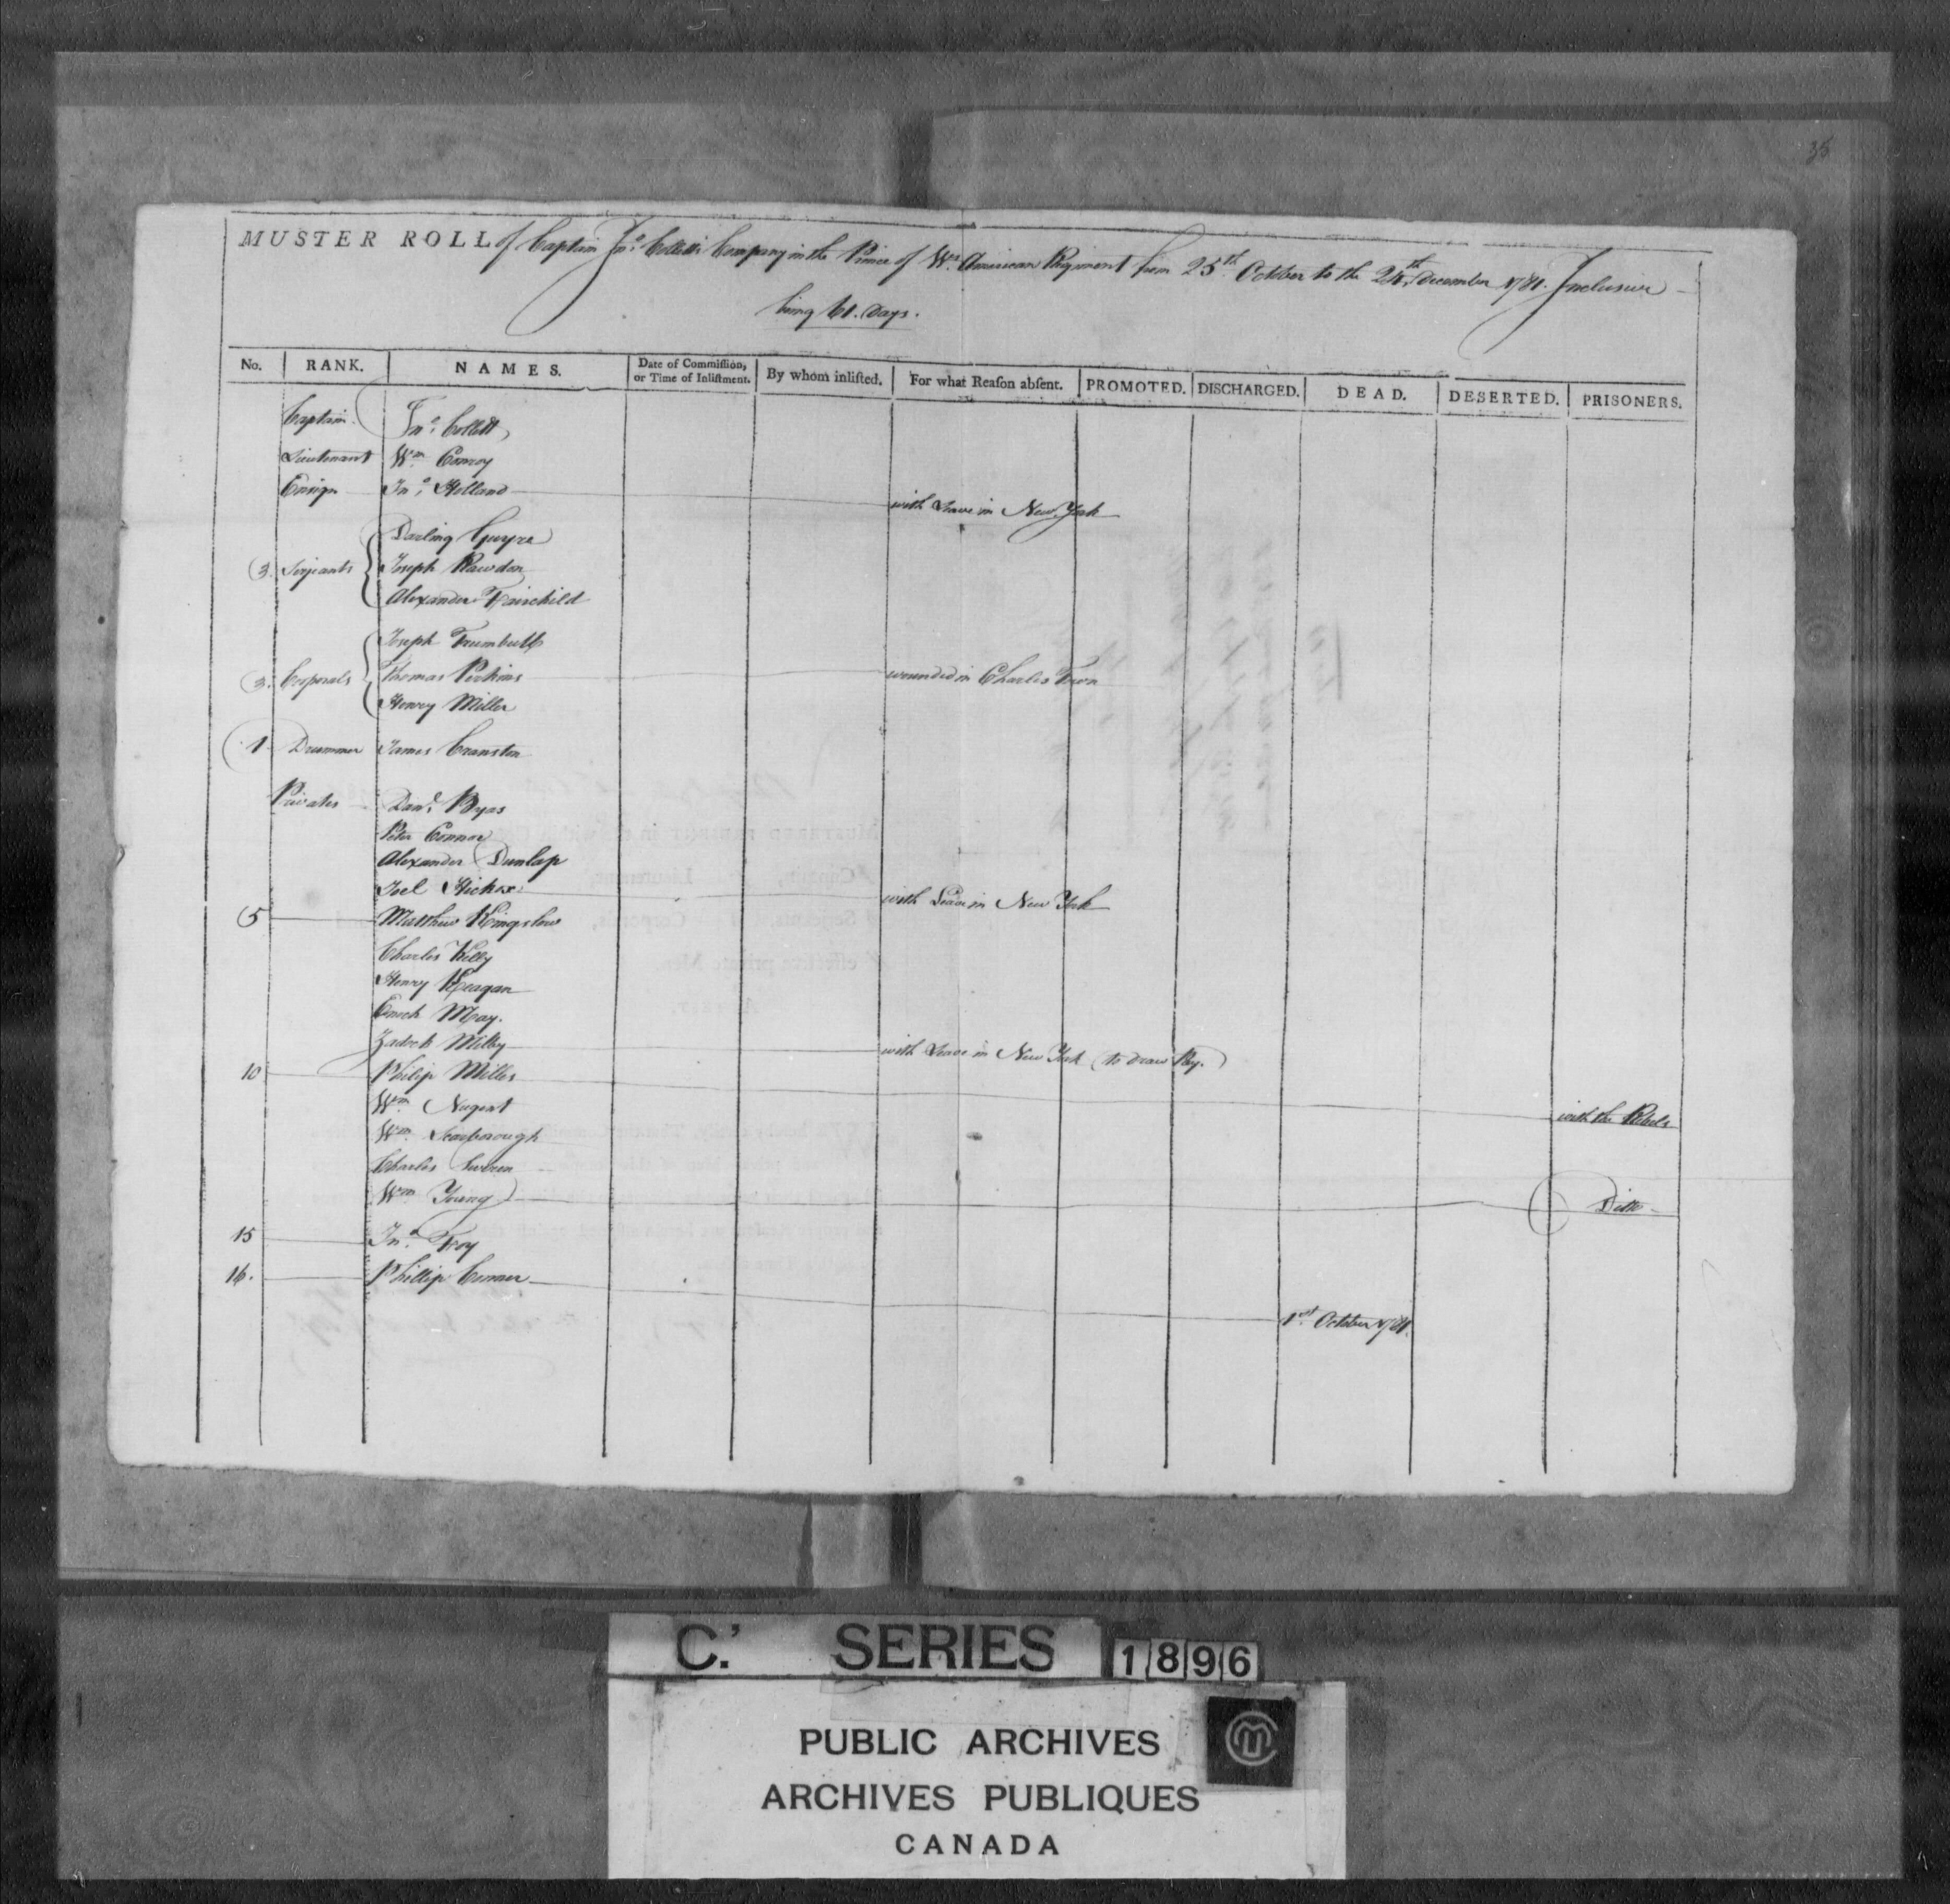 35
MUSTER ROLL of Captain Jno. Colletts Company in the Prince of Ws. American Regiment from 25th October to the 24th December 1781. Inclusive
being 61. Days.
No. RANK. NAMES. Date of Commission, or Time of Inlistment. By whom inlisted. For what Reason absent. PROMOTED. DISCHARGED. DEAD. DESERTED. PRISONERS.
Captain Jno. Collett
Lieutenant Wm. Conroy
Ensign Jno. Holland with Leave in New York
Darling Guyre
3. Serjeants Joseph Rawdon
Alexander Fairchild
Joseph Trumbull
3. Corporals Thomas Perkins wounded in Charles Town
Henry Miller
1 Drummer James Cranston
Privates Danl. Byas
Peter Connor
Alexander Dunlap
Joel Hickox with Leave in New York
5 Matthew Kingslow
Charles Kelly
Henry Keagan
Enoch May.
Zadock Milby with Leave in New York (to draw Pay.)
10 Philip Miller with the Rebels
Wm. Nugent
Wm. Scarborough
Charles
Wm. Young Ditto
15 Jno. Troy
16. Phillip Conner 1st October 1781.
C.' SERIES 1896
PUBLIC ARCHIVES
ARCHIVES PUBLIQUES
CANADA